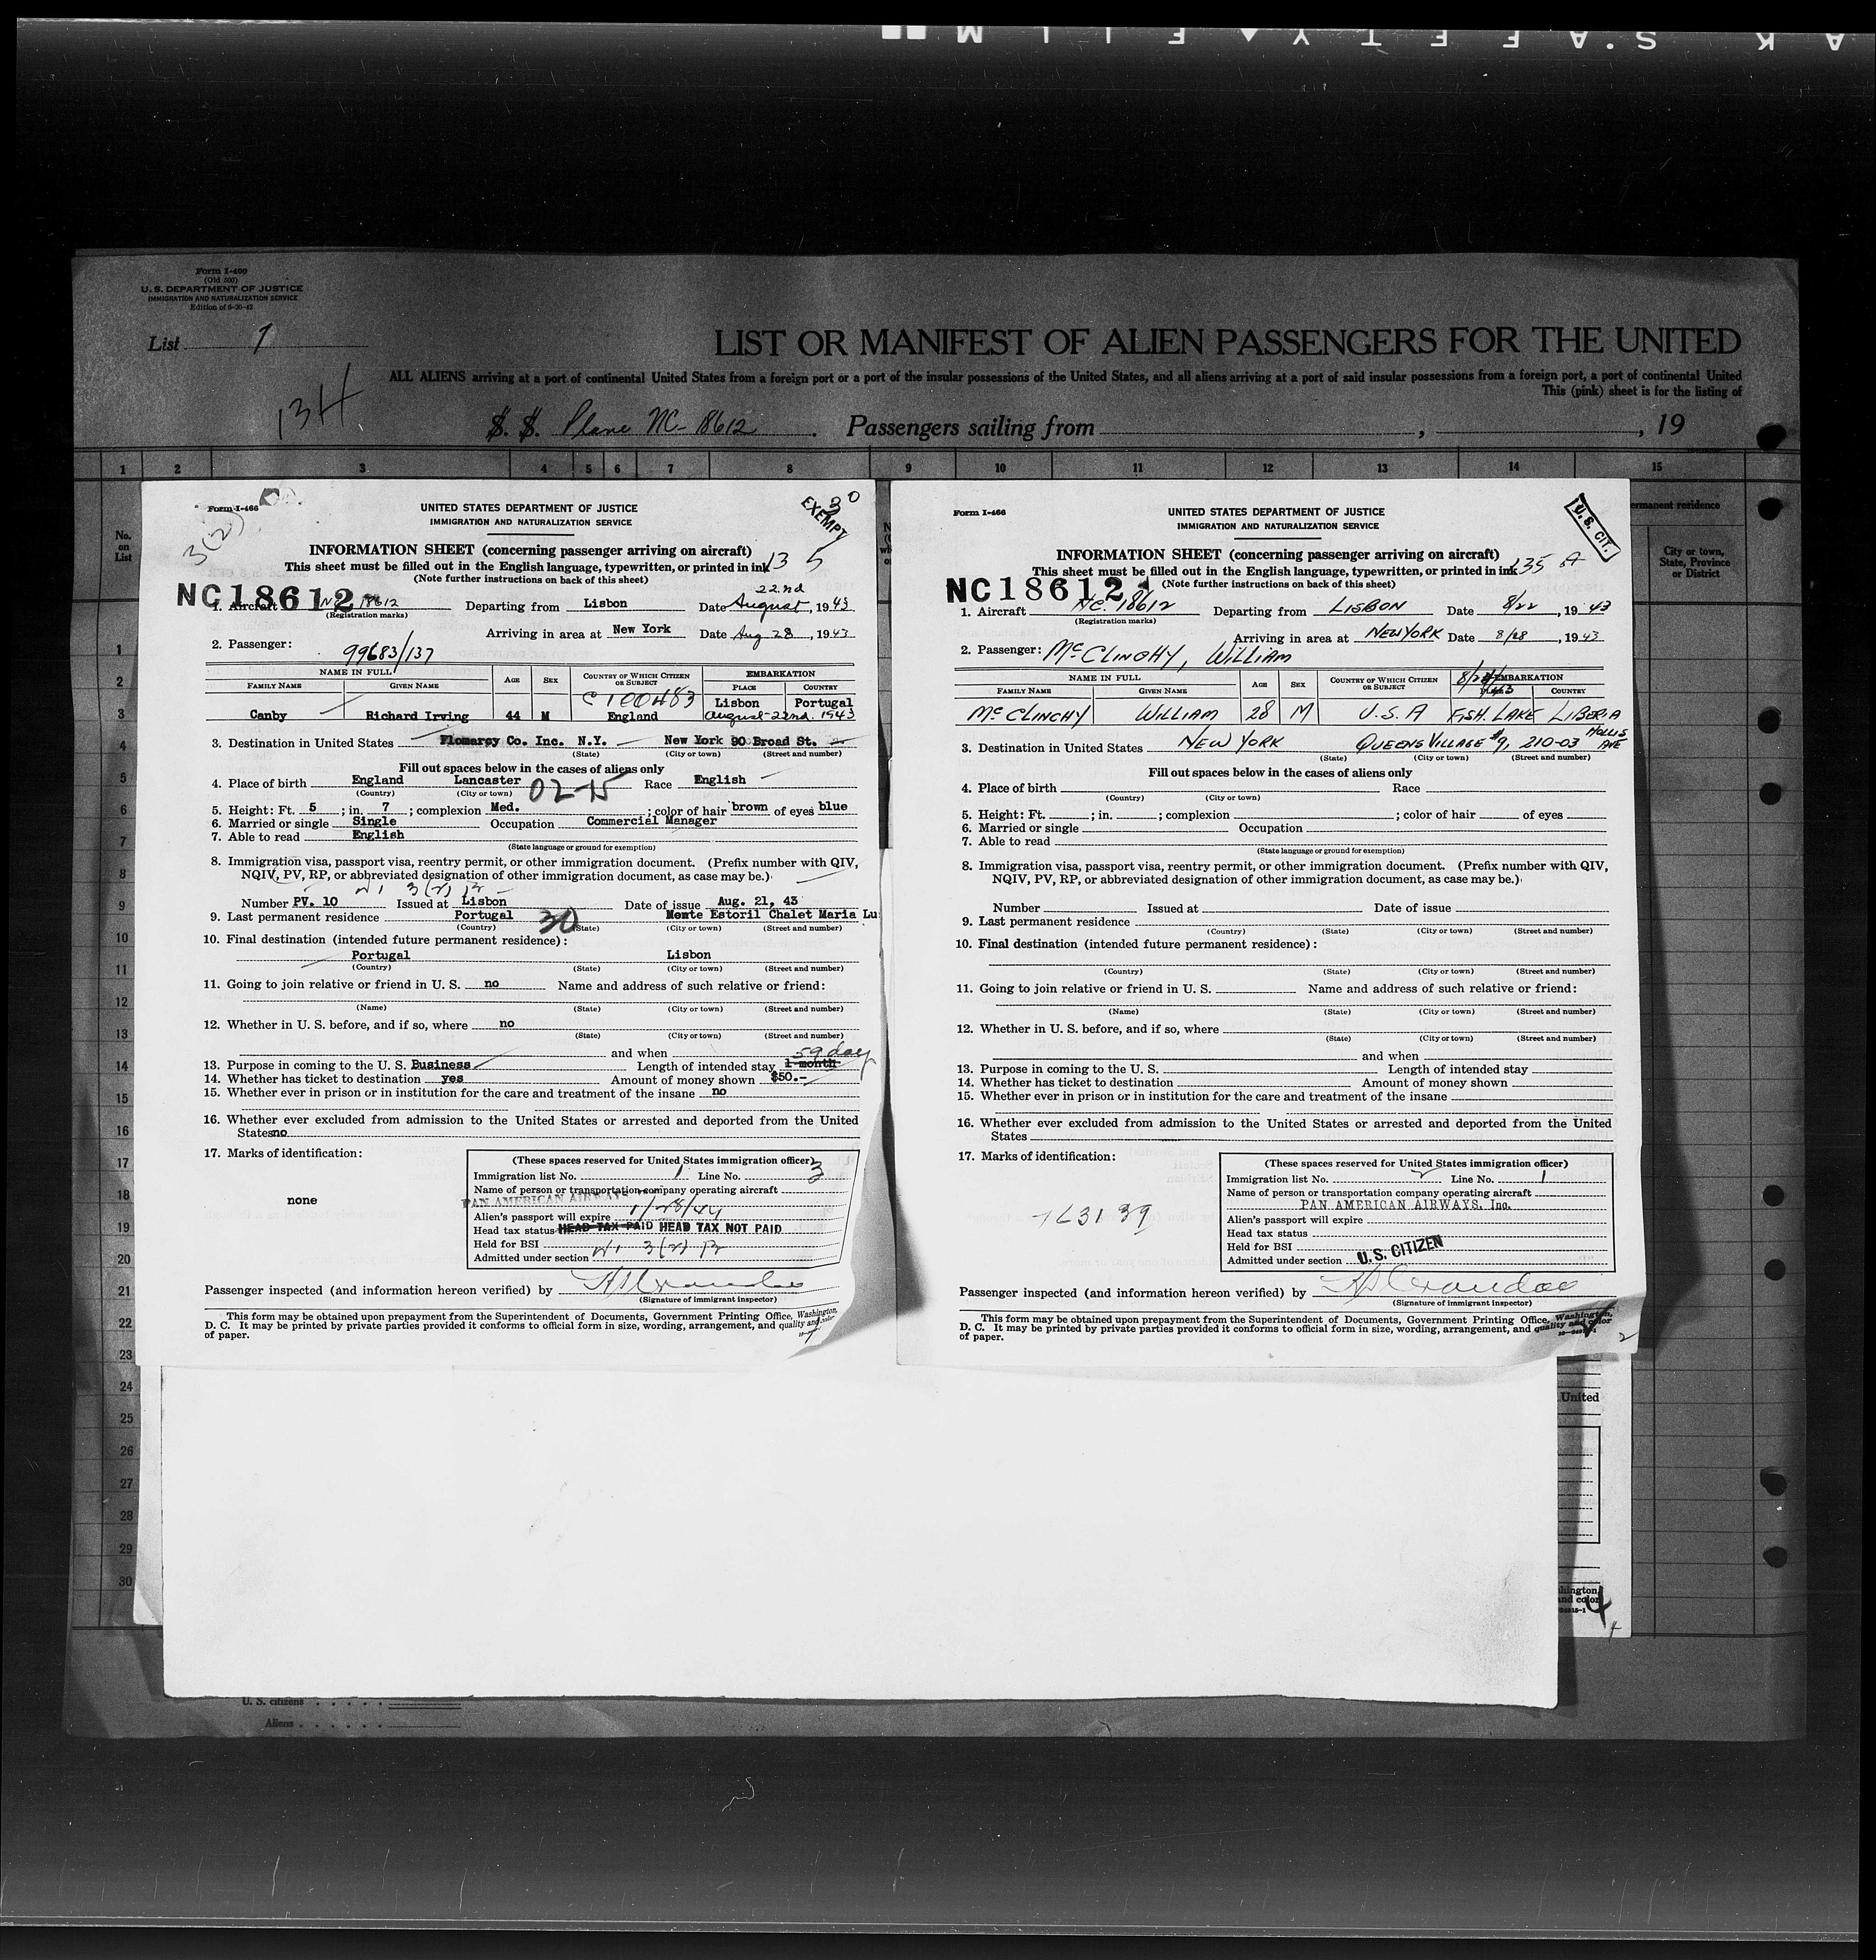 K A S.AFETY▲FILM
Form I-400
(Old 500)
U. S. DEPARTMENT OF JUSTICE
IMMIGRATION AND NATURALIZATION SERVICE
Edition of 6-20-42
List 1
LIST OR MANIFEST OF ALIEN PASSENGERS FOR THE UNITED
ALL ALIENS arriving at a port of continental United States from a foreign port or a port of the insular possessions of the United States, and all aliens arriving at a port of said insular possessions from a foreign port, a port of continental United
This (pink) sheet is for the listing of
134
S. S. Plane NC-18612. Passengers sailing from , , 19
1 2 3 4 5 6 7 8 9 10 11 12 13 14 15
No. on List
permanent residence
City or town, State, Province or District
1
2
3
4
5
6
7
8
9
10
11
12
13
14
15
16
17
18
19
20
21
22
23
24
25
26
27
28
29
30
Form I-466
3(2)
UNITED STATES DEPARTMENT OF JUSTICE
IMMIGRATION AND NATURALIZATION SERVICE
30
EXEMPT
INFORMATION SHEET (concerning passenger arriving on aircraft)
135
This sheet must be filled out in the English language, typewritten, or printed in ink
(Note further instructions on back of this sheet)
NC18612
1. Aircraft NC 18612 Departing from Lisbon Date August 22nd, 1943
(Registration marks)
Arriving in area at New York Date Aug 28, 1943
2. Passenger: 99683/137
NAME IN FULL AGE SEX COUNTRY OF WHICH CITIZEN OR SUBJECT EMBARKATION
FAMILY NAME GIVEN NAME PLACE COUNTRY
C100483 Lisbon Portugal
Canby Richard Irving 44 M England August-22nd. 1943
3. Destination in United States Flomarcy Co. Inc. N.Y. New York 90 Broad St.
(State) (City or town) (Street and number)
Fill out spaces below in the cases of aliens only
4. Place of birth England Lancaster Race English
(Country) (City or town)
02-15
5. Height: Ft. 5; in. 7; complexion Med.; color of hair brown of eyes blue
6. Married or single Single Occupation Commercial Manager
7. Able to read English
(State language or ground for exemption)
8. Immigration visa, passport visa, reentry permit, or other immigration document. (Prefix number with QIV,
NQIV, PV, RP, or abbreviated designation of other immigration document, as case may be.)
3(2) B
Number PV. 10 Issued at Lisbon Date of issue Aug. 21, 43
9. Last permanent residence Portugal 30 Monte Estoril Chalet Maria Lu
(Country) (State) (City or town) (Street and number)
10. Final destination (intended future permanent residence):
Portugal Lisbon
(Country) (State) (City or town) (Street and number)
11. Going to join relative or friend in U. S. no Name and address of such relative or friend:
(Name) (State) (City or town) (Street and number)
12. Whether in U. S. before, and if so, where no
(State) (City or town) (Street and number)
and when
59 days
13. Purpose in coming to the U. S. Business Length of intended stay 1 month
14. Whether has ticket to destination yes Amount of money shown $50.-
15. Whether ever in prison or in institution for the care and treatment of the insane no
16. Whether ever excluded from admission to the United States or arrested and deported from the United
States no
17. Marks of identification:
none
(These spaces reserved for United States immigration officer)
Immigration list No. 1 Line No. 3
Name of person or transportation company operating aircraft
PAN AMERICAN AIRWAYS
Alien's passport will expire 1/28/44
Head tax status HEAD TAX PAID HEAD TAX NOT PAID
Held for BSI
Admitted under section 3(2) B
Passenger inspected (and information hereon verified) by
(Signature of immigrant inspector)
This form may be obtained upon prepayment from the Superintendent of Documents, Government Printing Office, Washington,
D. C. It may be printed by private parties provided it conforms to official form in size, wording, arrangement, and quality and color
of paper.
Form I-466
UNITED STATES DEPARTMENT OF JUSTICE
IMMIGRATION AND NATURALIZATION SERVICE
U. S. CIT.
INFORMATION SHEET (concerning passenger arriving on aircraft)
135 A
This sheet must be filled out in the English language, typewritten, or printed in ink
(Note further instructions on back of this sheet)
NC18612
1. Aircraft NC-18612 Departing from LISBON Date 8/22, 1943
(Registration marks)
Arriving in area at NEW YORK Date 8/28, 1943
2. Passenger: McCLINCHY, WILLIAM
NAME IN FULL AGE SEX COUNTRY OF WHICH CITIZEN OR SUBJECT EMBARKATION
FAMILY NAME GIVEN NAME COUNTRY
McCLINCHY WILLIAM 28 M U.S.A FISH LAKE LIBERIA
3. Destination in United States NEW YORK QUEENS VILLAGE #9, 210-03 HOLLIS AVE
(State) (City or town) (Street and number)
Fill out spaces below in the cases of aliens only
4. Place of birth Race
(Country) (City or town)
5. Height: Ft. ; in. ; complexion ; color of hair of eyes
6. Married or single Occupation
7. Able to read
(State language or ground for exemption)
8. Immigration visa, passport visa, reentry permit, or other immigration document. (Prefix number with QIV,
NQIV, PV, RP, or abbreviated designation of other immigration document, as case may be.)
Number Issued at Date of issue
9. Last permanent residence
(Country) (State) (City or town) (Street and number)
10. Final destination (intended future permanent residence):
(Country) (State) (City or town) (Street and number)
11. Going to join relative or friend in U. S. Name and address of such relative or friend:
(Name) (State) (City or town) (Street and number)
12. Whether in U. S. before, and if so, where
(State) (City or town) (Street and number)
and when
13. Purpose in coming to the U. S. Length of intended stay
14. Whether has ticket to destination Amount of money shown
15. Whether ever in prison or in institution for the care and treatment of the insane
16. Whether ever excluded from admission to the United States or arrested and deported from the United
States
17. Marks of identification:
(These spaces reserved for United States immigration officer)
Immigration list No. 2 Line No. 1
Name of person or transportation company operating aircraft
PAN AMERICAN AIRWAYS, Inc.
Alien's passport will expire
Head tax status
Held for BSI
Admitted under section U.S. CITIZEN
Passenger inspected (and information hereon verified) by
(Signature of immigrant inspector)
This form may be obtained upon prepayment from the Superintendent of Documents, Government Printing Office, Washington,
D. C. It may be printed by private parties provided it conforms to official form in size, wording, arrangement, and quality and color
of paper.
2
United
and color
4
U. S. citizens
Aliens